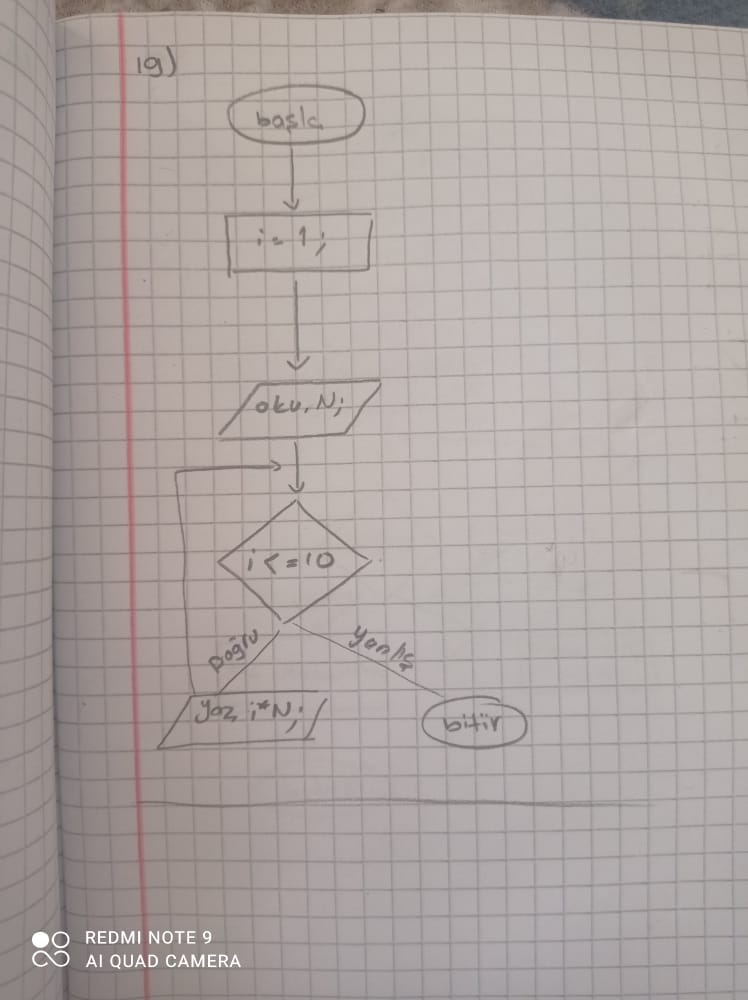 19)
başla
i = 1;
oku, N;
i <= 10
Doğru
Yanlış
yaz i*N;
bitir
REDMI NOTE 9
AI QUAD CAMERA